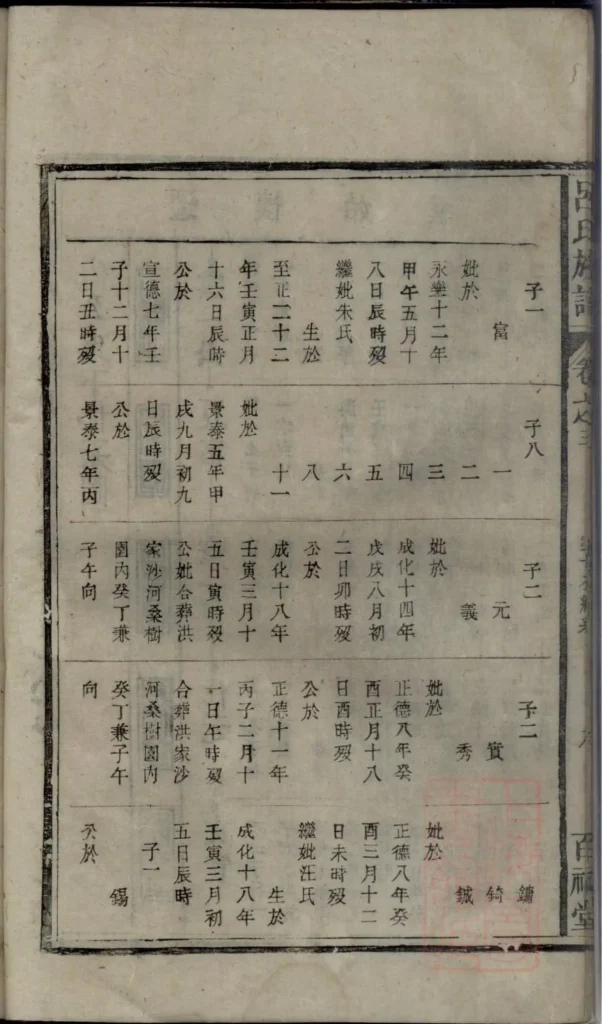 呂氏族譜
卷之三
百祠堂
子一
富
妣於
永樂十二年
甲午五月十
八日辰時歿
繼妣朱氏
生於
至正二十二
年壬寅正月
十六日辰時
公於
宣德七年壬
子十二月十
二日丑時歿
子八
一
二
三
四
五
六
八
十一
妣於
景泰五年甲
戌九月初九
日辰時歿
公於
景泰七年丙
子二
元
義
妣於
成化十四年
戊戌八月初
二日卯時歿
公於
成化十八年
壬寅三月十
五日寅時歿
公妣合葬洪
家沙河桑樹
園內癸丁兼
子午向
子二
實
秀
妣於
正德八年癸
酉正月十八
日酉時歿
公於
正德十一年
丙子二月十
一日午時歿
合葬洪家沙
河桑樹園內
癸丁兼子午
向
鏞
錡
鉞
妣於
正德八年癸
酉三月十二
日未時歿
繼妣汪氏
生於
成化十八年
壬寅三月初
五日辰時
子一
錫
公於